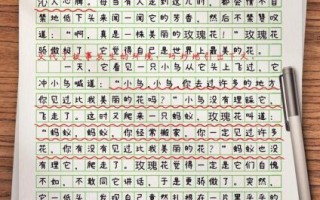 沁人心脾，每当有人走到这儿时，都会情不自禁
地低下头来闻一闻它的芳香，然后不禁赞叹
道：“啊，真是一株美丽的玫瑰花！”玫瑰花
骄傲极了，它觉得自己是世界上最美的花。
一天，它看见一只小鸟从它头上飞过，它
冲小鸟喊道：“小鸟，小鸟，你去过许多的地方，
你见过比我美丽的花吗？”小鸟没有理睬它，
飞走了。这时又爬来了一只蚂蚁，玫瑰花喊道：
“蚂蚁，蚂蚁，你经常搬家，你一定见过许多
花，你有没有见过比我美丽的花？”蚂蚁也没
有理它，爬走了。玫瑰花觉得一定是它们自愧
不如，不敢同它讲话，于是更骄傲了。突然，